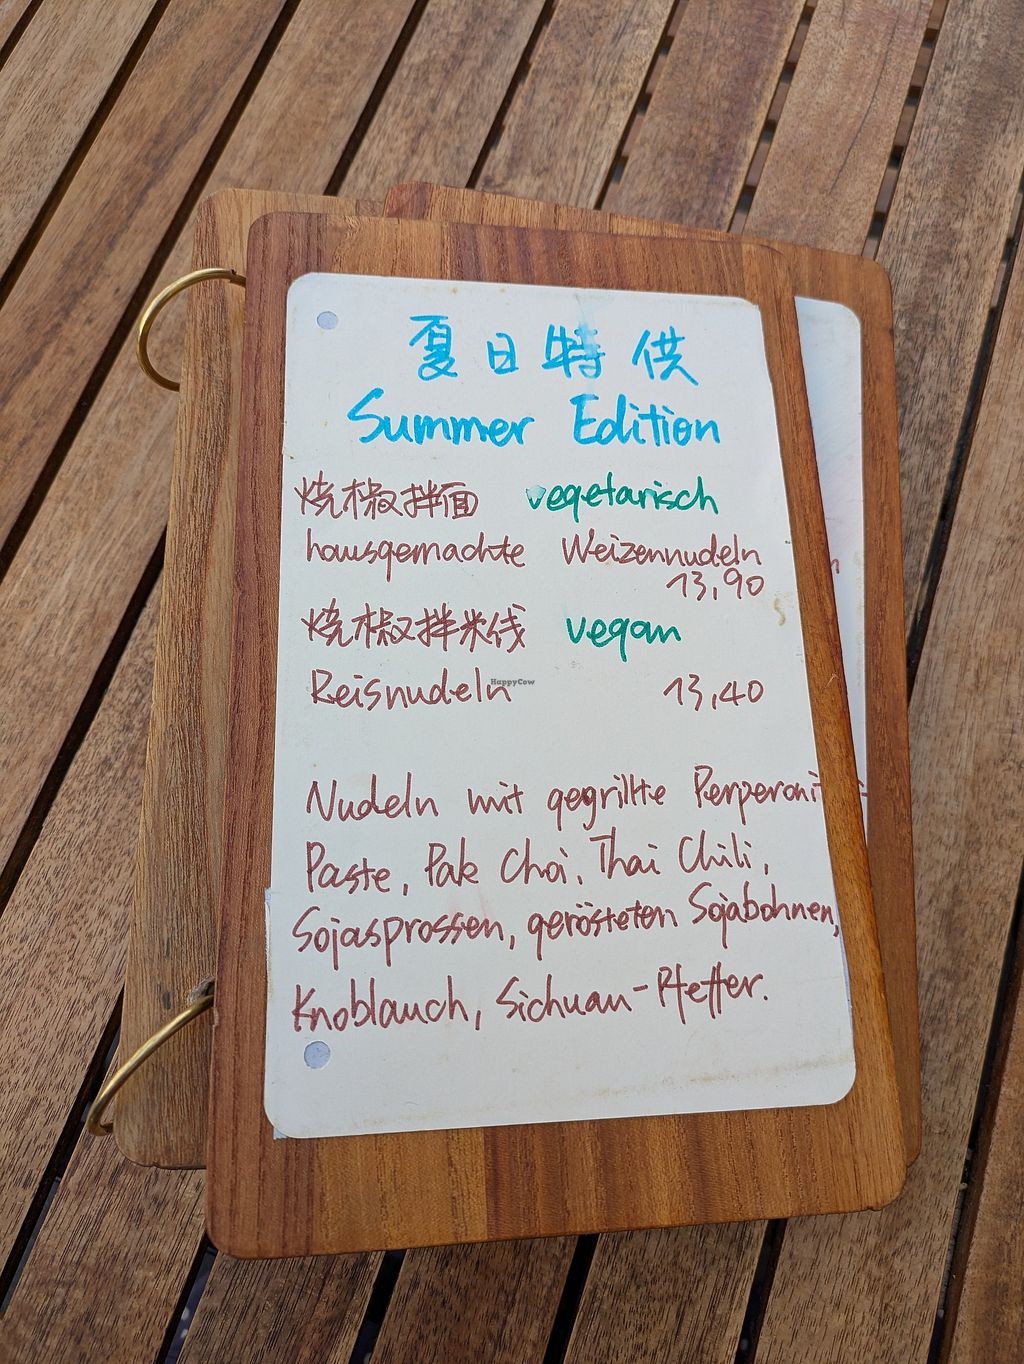 夏日特供
Summer Edition
烧椒拌面 vegetarisch
hausgemachte Weizennudeln
13,90
烧椒拌米线 vegan
Reisnudeln 13,40
HappyCow
Nudeln mit gegrillte Perperoni
Paste, Pak Choi, Thai Chili,
Sojasprossen, gerösteten Sojabohnen,
Knoblauch, Sichuan-Pfeffer.